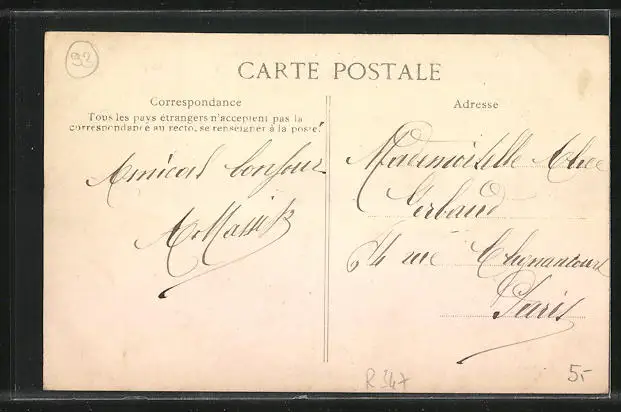 92
CARTE POSTALE
Correspondance
Tous les pays étrangers n'acceptent pas la
correspondance au recto, se renseigner à la poste.
Amical bonjour
Adresse
Mademoiselle Alice
Gerbaud
64 rue Clignancourt
Paris
R347
5-